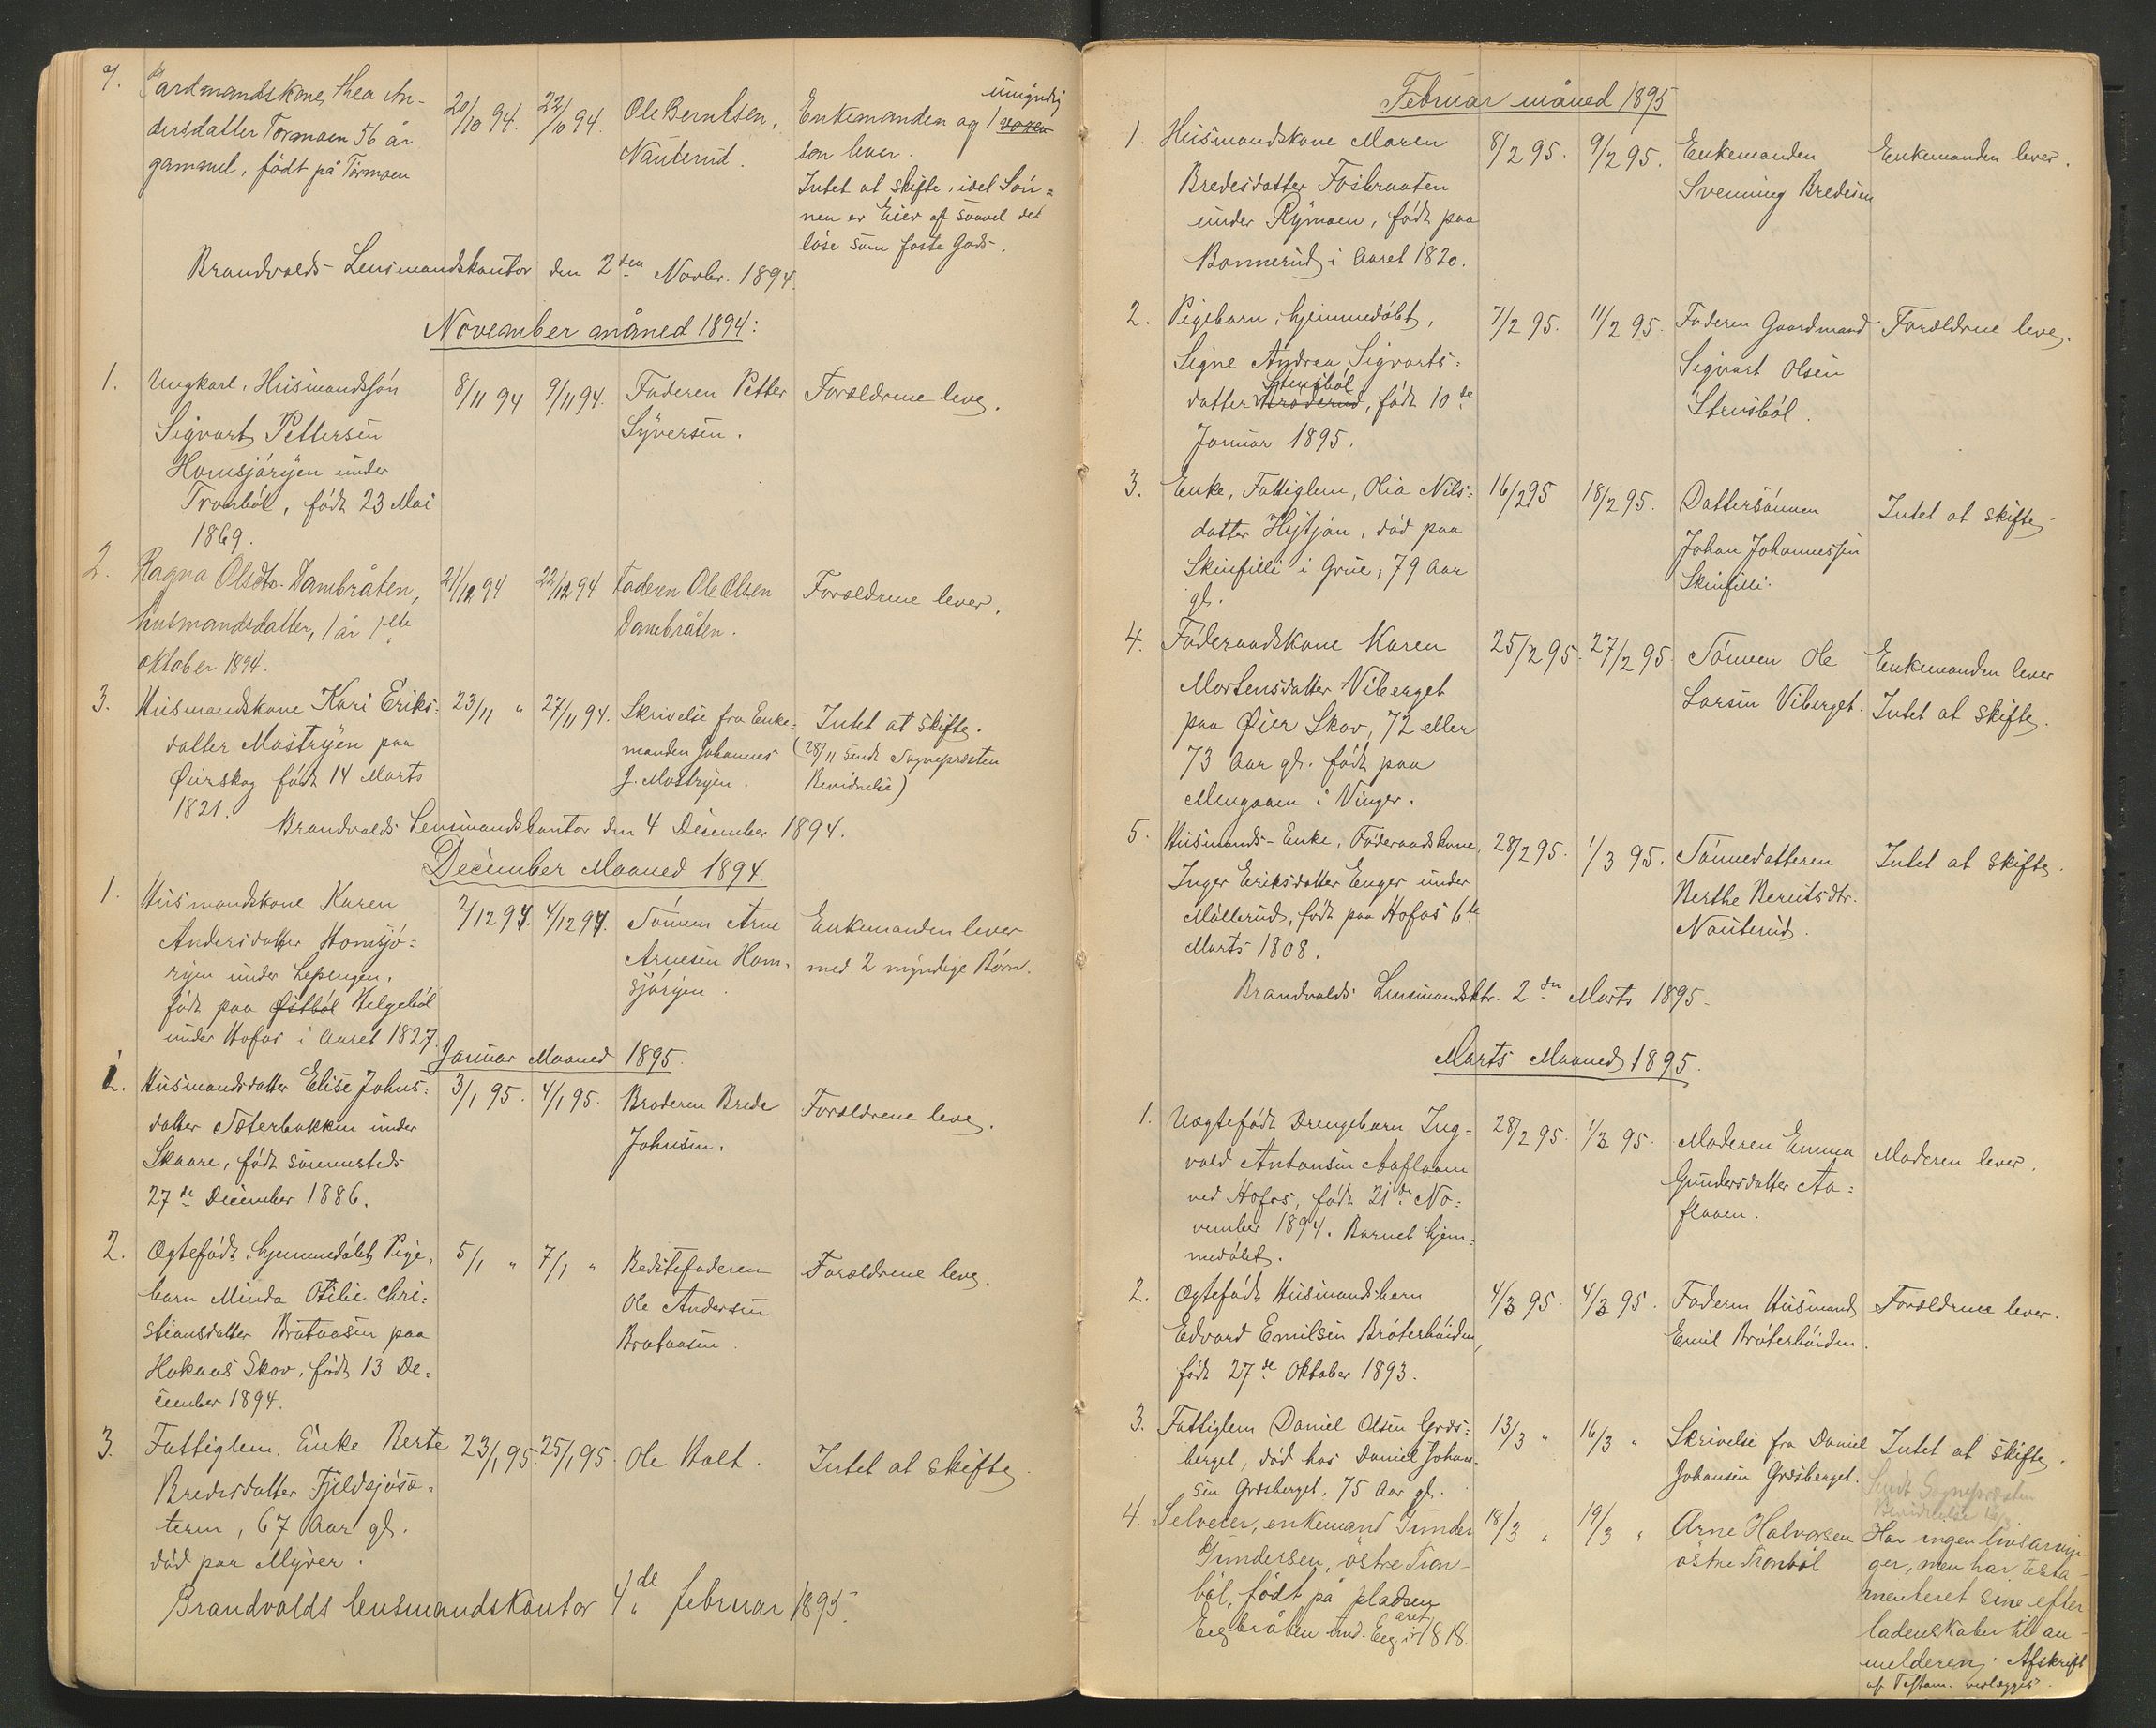 7. Gardmandskone Thea An-
dersdatter Tormoen 56 år
gammel, født på Tormoen
20/10 94. 22/10 94.
Ole Berntsen,
Nauterud.
umyndig
Enkemanden og 1 voxen
søn lever.
Intet at skifte, idet Søn=
nen er Eier af saavel det
løse som faste Gods.
Brandvolds Lensmandskontor den 2den Novbr. 1894.
November måned 1894:
1. Ungkarl, Husmandssøn
Sigvart Pettersen
Homsjøryen under
Tronbøl, født 23 Mai
1869.
8/11 94 9/11 94.
Faderen Petter
Syversen.
Forældrene leve.
2. Ragna Olsdtr. Dambråten,
husmandsdatter, 1 år 1ste
oktober 1894.
21/12 94 22/12 94
Faderen Ole Olsen
Dambråten.
Forældrene lever.
3. Husmandskone Kari Eriks=
datter Mastryen paa
Øierskog født 14 Marts
1821.
23/11 " 27/11 94.
Skrivelse fra Enke=
manden Johannes
J. Mastryen.
Intet at skifte.
(28/11 sendt Sognepresten
Bevidnelse)
Brandvolds Lensmandskontor den 4 December 1894.
December Maaned 1894.
1. Husmandskone Karen
Andersdatter Homsjø=
ryen under Lepengen,
født paa Østbøl Helgebøl
under Hofos i Aaret 1827.
2/12 94. 4/12 94.
Sønnen Arne
Arnesen Hom-
sjøryen.
Enkemanden lever
med 2 myndige Børn.
Januar Maaned 1895.
1. Husmandsdatter Elise Johns=
datter Sæterbakken under
Skaare, født sammesteds
27de December 1886.
3/1 95. 4/1 95.
Broderen Brede
Johnsen.
Forældrene leve.
2. Ægtefødt, hjemmedøbt Pige=
barn Minda Otilie Chri=
stiansdatter Brataasen paa
Hokaas Skov, født 13 De=
cember 1894.
5/1 " 7/1 "
Bedstefaderen
Ole Andersen
Brataasen.
Forældrene leve.
3. Fattiglem. Enke Berte
Bredesdatter Fjeldsjøsæ=
teren, 67 Aar gl.
død paa Myrer.
23/1 95. 25/1 95.
Ole Holt.
Intet at skifte.
Brandvolds lensmandskontor 4de februar 1895.
Februar måned 1895
1. Husmandskone Maren
Bredesdatter Fosbraaten
under Rymoen, født paa
Bonnerud i Aaret 1820.
8/2 95. 9/2 95.
Enkemanden
Svenning Bredesen
Enkemanden lever.
2. Pigebarn, hjemmedøbt,
Signe Andrea Sigvarts=
Stensbøl
datter, født 10de
Januar 1895.
7/2 95. 11/2 95.
Faderen Gaardmand
Sigvart Olsen
Stensbøl.
Forældrene leve.
3. Enke, Fattiglem, Olia Nils=
datter Hytjan, død paa
Skinfilli i Grue, 79 Aar
gl.
16/2 95 18/2 95.
Dattersønnen
Johan Johannessen
Skinfilli.
Intet at skifte.
4. Føderaadskone Karen
Mortensdatter Viberget
paa Øier Skov, 72 eller
73 Aar gl. født paa
Mengaaen i Vinger.
25/2 95. 27/2 95.
Sønnen Ole
Larsen Viberget.
Enkemanden lever
Intet at skifte.
5. Husmands-Enke, Føderaadskone,
Inger Eriksdatter Enger under
Møllerud, født paa Hofos 6te
Marts 1808.
28/2 95. 1/3 95.
Sønnedatteren
Berthe Berntsdtr.
Nauterud.
Intet at skifte.
Brandvolds Lensmandsktr. 2den Marts 1895.
Marts Maaned 1895.
1. Uægtefødt Drengebarn Ing=
vald Antonsen Aafloaen
ved Hofos, født 21de No=
vember 1894. Barnet hjem=
medøbt.
28/2 95. 1/3 95.
Moderen Emma
Gundersdatter Aa=
floaen.
Moderen lever.
2. Ægtefødt Husmandsbarn
Edvard Emilsen Bråterhøiden,
født 27de Oktober 1893.
4/3 95. 4/3 95.
Faderen Husmand
Emil Bråterhøiden.
Forældrene lever.
3. Fattiglem Daniel Olsen Græs=
berget, død hos Daniel Johan-
sen Græsberget, 75 Aar gl.
13/3 " 16/3 "
Skrivelse fra Daniel
Johansen Græsberget.
Intet at skifte.
Sendt Sognepresten
Bevidnelse 16/3
4. Selveier, enkemand Gunder
Gundersen, østre Tron-
bøl, født på pladsen
Eegbråten und. Eeg i året 1818.
18/3 " 19/3 "
Arne Halvorsen
østre Tronbøl
Har ingen livsarvin-
ger, men har testa-
menteret sine efter-
ladenskaber til an-
melderen. Afskrift
af Testam. vedlægges.